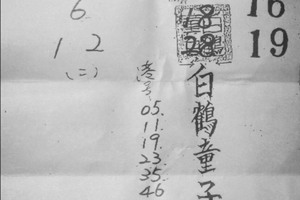 6
1 2
(二)
18
28
16
19
白鶴童子
05.
11.
19.
23.
35.
46